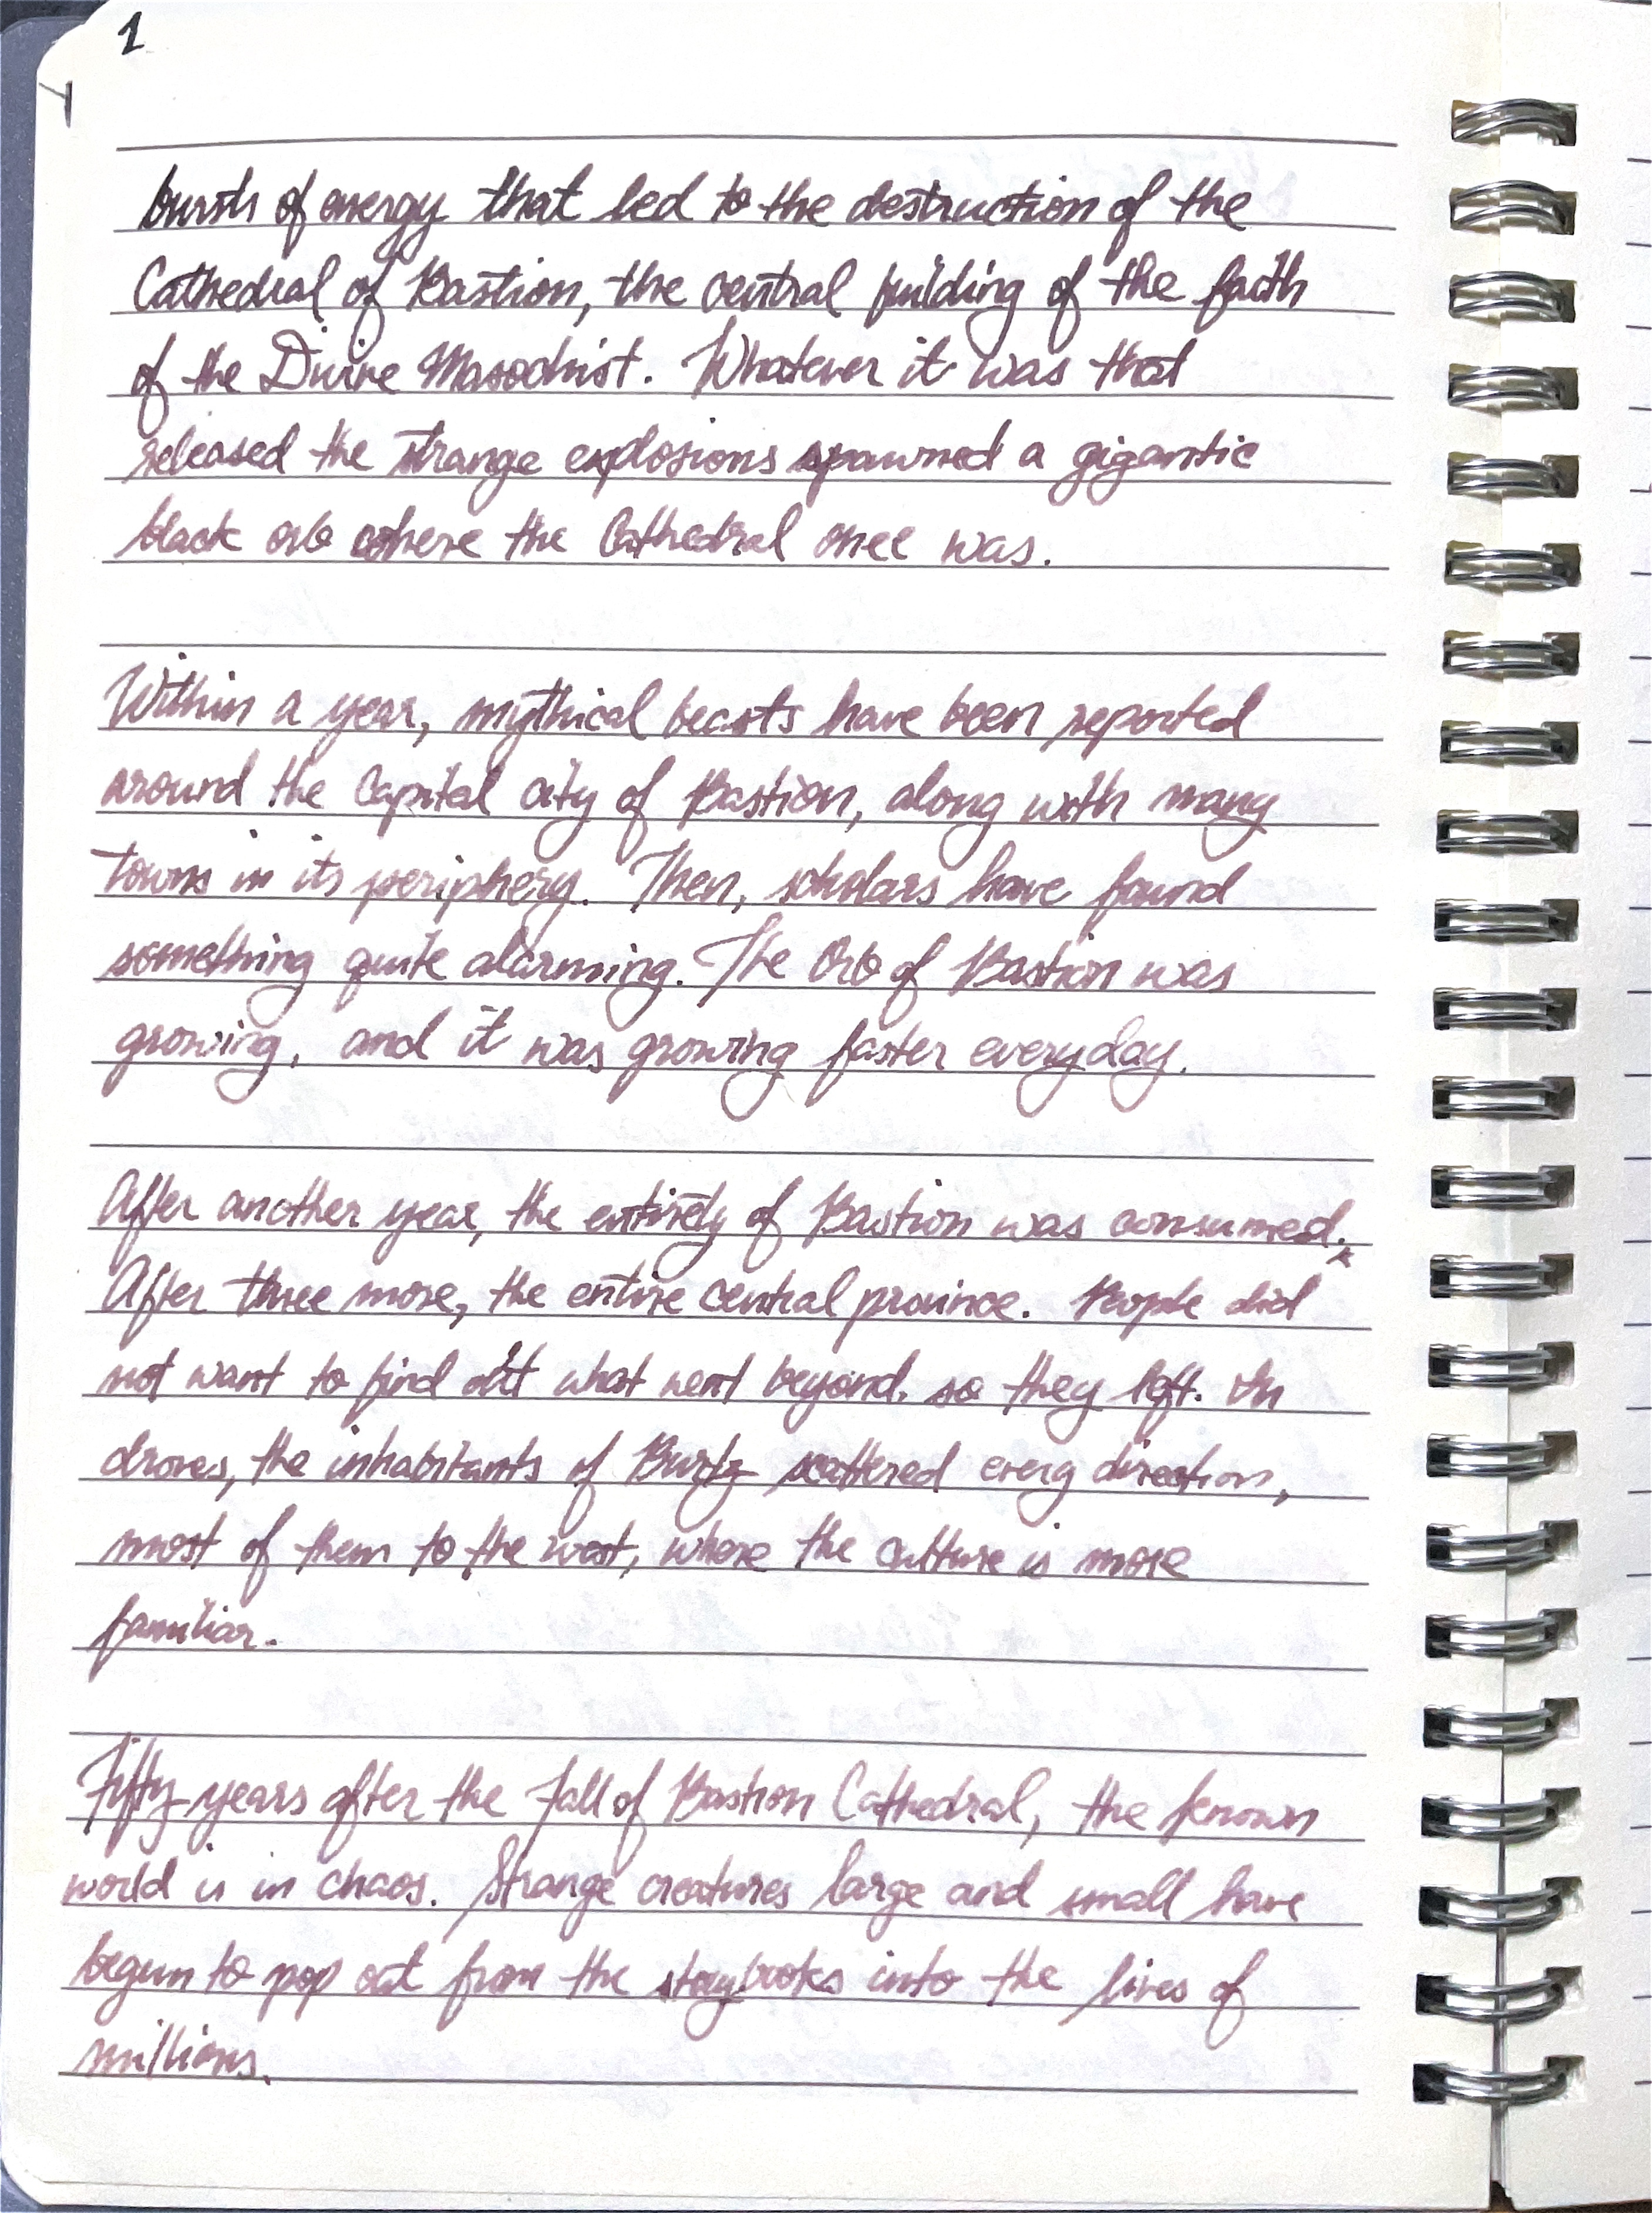 1
bursts of energy that led to the destruction of the
Cathedral of Bastion, the central building of the faith
of the Divine Masochist. Whatever it was that
released the strange explosions spawned a gigantic
black orb where the Cathedral once was.
Within a year, mythical beasts have been reported
around the Capital city of Bastion, along with many
towns in its periphery. Then, scholars have found
something quite alarming. The Orb of Bastion was
growing, and it was growing faster everyday.
After another year, the entirety of Bastion was consumed.
After three more, the entire central province. People did
not want to find out what went beyond, so they left. In
droves, the inhabitants of scattered every direction,
most of them to the west, where the culture is more
familiar.
Fifty years after the Fall of Bastion Cathedral, the known
world is in chaos. Strange creatures large and small have
begun to pop out from the storybooks into the lives of
millions.